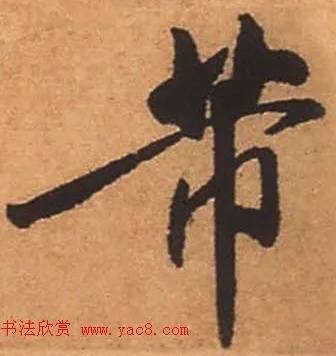 带
书法欣赏 www.yac8.com